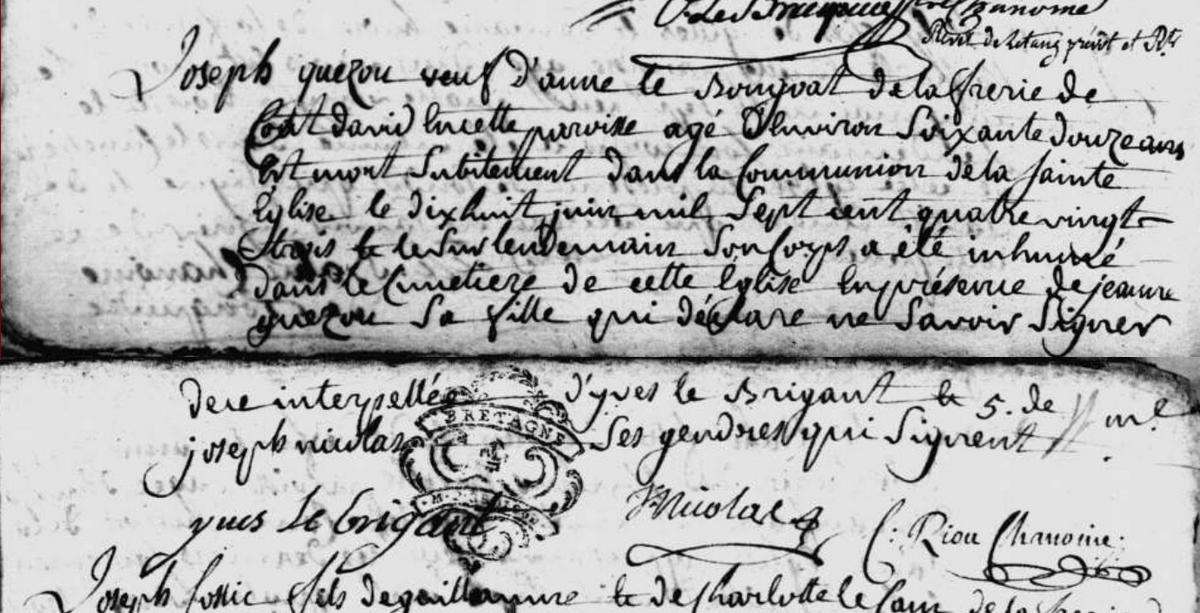 Chanoine
Joseph quezou veuf d'anne le Bongoat de la frerie de
Coat david En cette paroisse agé D'Environ Soixante douze ans
Est mort Subitement dans la Communion de la Sainte
Eglise le dixhuit juin mil Sept cent quatre vingt
trois & le Surlendemain Son Corps a été inhumé
dans le Cimetiere de cette Eglise En présence de jeanne
quezou Sa fille qui déclare ne Savoir Signer
de ce interpellée d'yves le Brigant & 5. de
joseph nicolas Ses gendres qui Signent
BRETAGNE
yves Le brigant Nicolas C. Riou Chanoine.
Joseph fils de guillaume & de Charlotte le